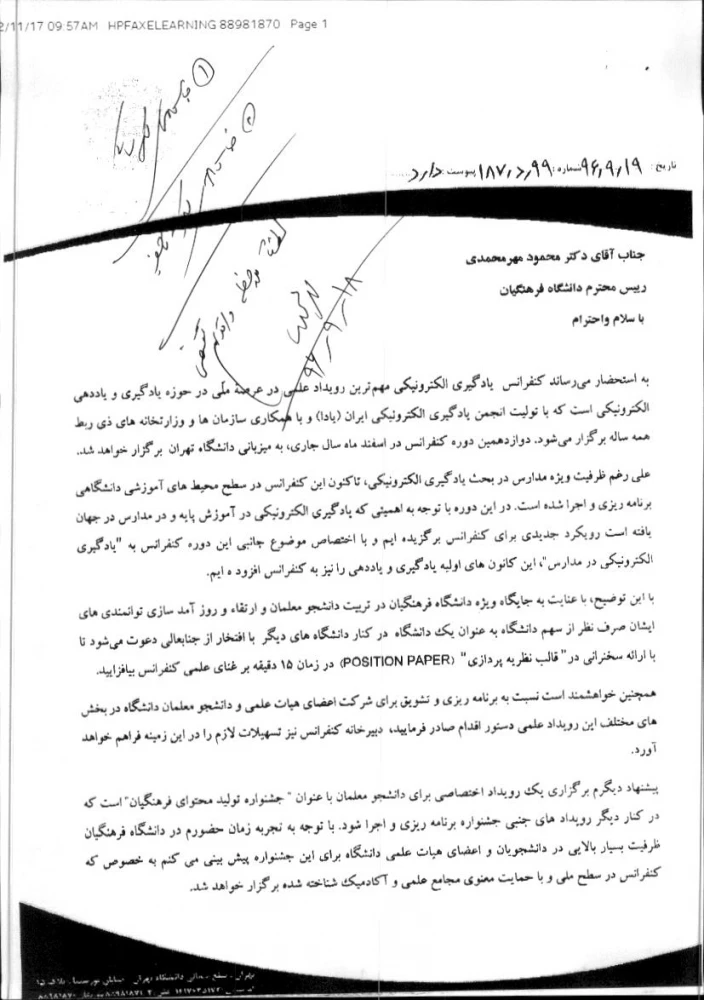 2/11/17 09:57AM HPFAXELEARNING 88981870 Page 1
تاریخ: ۹۶/۹/۱۹ شماره: ۱۸۷/د/۹۹ پیوست: دارد
جناب آقای دکتر محمود مهرمحمدی
رییس محترم دانشگاه فرهنگیان
با سلام واحترام
به استحضار می‌رساند کنفرانس یادگیری الکترونیکی مهم‌ترین رویداد علمی در عرصهٔ ملّی در حوزه یادگیری و یاددهی
الکترونیکی است که با تولیت انجمن یادگیری الکترونیکی ایران (یادا) و با همکاری سازمان ها و وزارتخانه های ذی ربط
همه ساله برگزار می‌شود. دوازدهمین دوره کنفرانس در اسفند ماه سال جاری، به میزبانی دانشگاه تهران برگزار خواهد شد.
علی رغم ظرفیت ویژه مدارس در بحث یادگیری الکترونیکی، تاکنون این کنفرانس در سطح محیط های آموزشی دانشگاهی
برنامه ریزی و اجرا شده است. در این دوره با توجه به اهمیتی که یادگیری الکترونیکی در آموزش پایه و در مدارس در جهان
یافته است رویکرد جدیدی برای کنفرانس برگزیده ایم و با اختصاص موضوع جانبی این دوره کنفرانس به "یادگیری
الکترونیکی در مدارس"، این کانون های اولیه یادگیری و یاددهی را نیز به کنفرانس افزود ه ایم.
با این توضیح، با عنایت به جایگاه ویژه دانشگاه فرهنگیان در تربیت دانشجو معلمان و ارتقاء و روز آمد سازی توانمندی های
ایشان صرف نظر از سهم دانشگاه به عنوان یک دانشگاه در کنار دانشگاه های دیگر با افتخار از جنابعالی دعوت می‌شود تا
با ارائه سخنرانی در" قالب نظریه پردازی" (POSITION PAPER) در زمان ۱۵ دقیقه بر غنای علمی کنفرانس بیافزایید.
همچنین خواهشمند است نسبت به برنامه ریزی و تشویق برای شرکت اعضای هیات علمی و دانشجو معلمان دانشگاه در بخش
های مختلف این رویداد علمی دستور اقدام صادر فرمایید، دبیرخانه کنفرانس نیز تسهیلات لازم را در این زمینه فراهم خواهد
آورد.
پیشنهاد دیگرم برگزاری یک رویداد اختصاصی برای دانشجو معلمان با عنوان " جشنواره تولید محتوای فرهنگیان" است که
در کنار دیگر رویداد های جنبی جشنواره برنامه ریزی و اجرا شود. با توجه به تجربه زمان حضورم در دانشگاه فرهنگیان
ظرفیت بسیار بالایی در دانشجویان و اعضای هیات علمی دانشگاه برای این جشنواره پیش بینی می کنم به خصوص که
کنفرانس در سطح ملی و با حمایت معنوی مجامع علمی و آکادمیک شناخته شده برگزار خواهد شد.